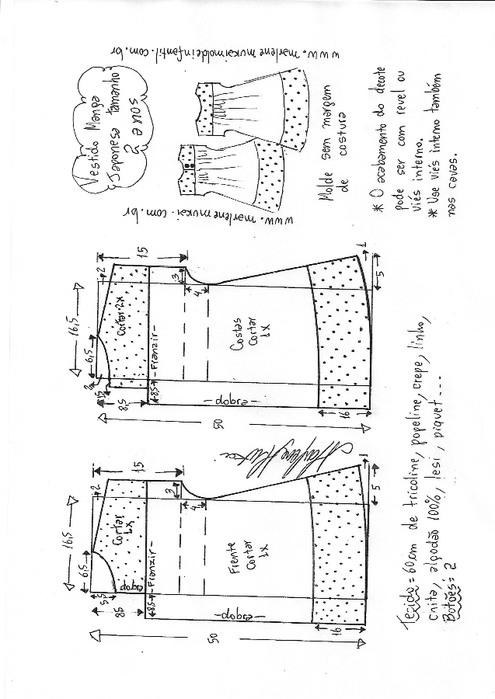 Vestido Manga
Japonesa tamanho
50 u e y
www.marlenemukaimoldeinfantil.com.br
www.marlenemukai.com.br
Molde sem margem
de costura
* O acabamento do decote
pode ser com revel ou
viés interno.
* Use viés interno também
nas cavas.
15
2
16,5
6,5
3
Cortar 2x
3
4
Franzir
Costas
Cortar
1x
1
5
8,5
8,5
dobra
16
50
15
2
16,5
6,5
Cortar
1x
3
4
Franzir
Frente
Cortar
1x
1
5
dobra
8,5
8,5
dobra
16
50
Tecido = 60cm de tricoline, popeline, crepe, linho,
chita, algodão 100%, lesi, piquet ...
Botões = 2